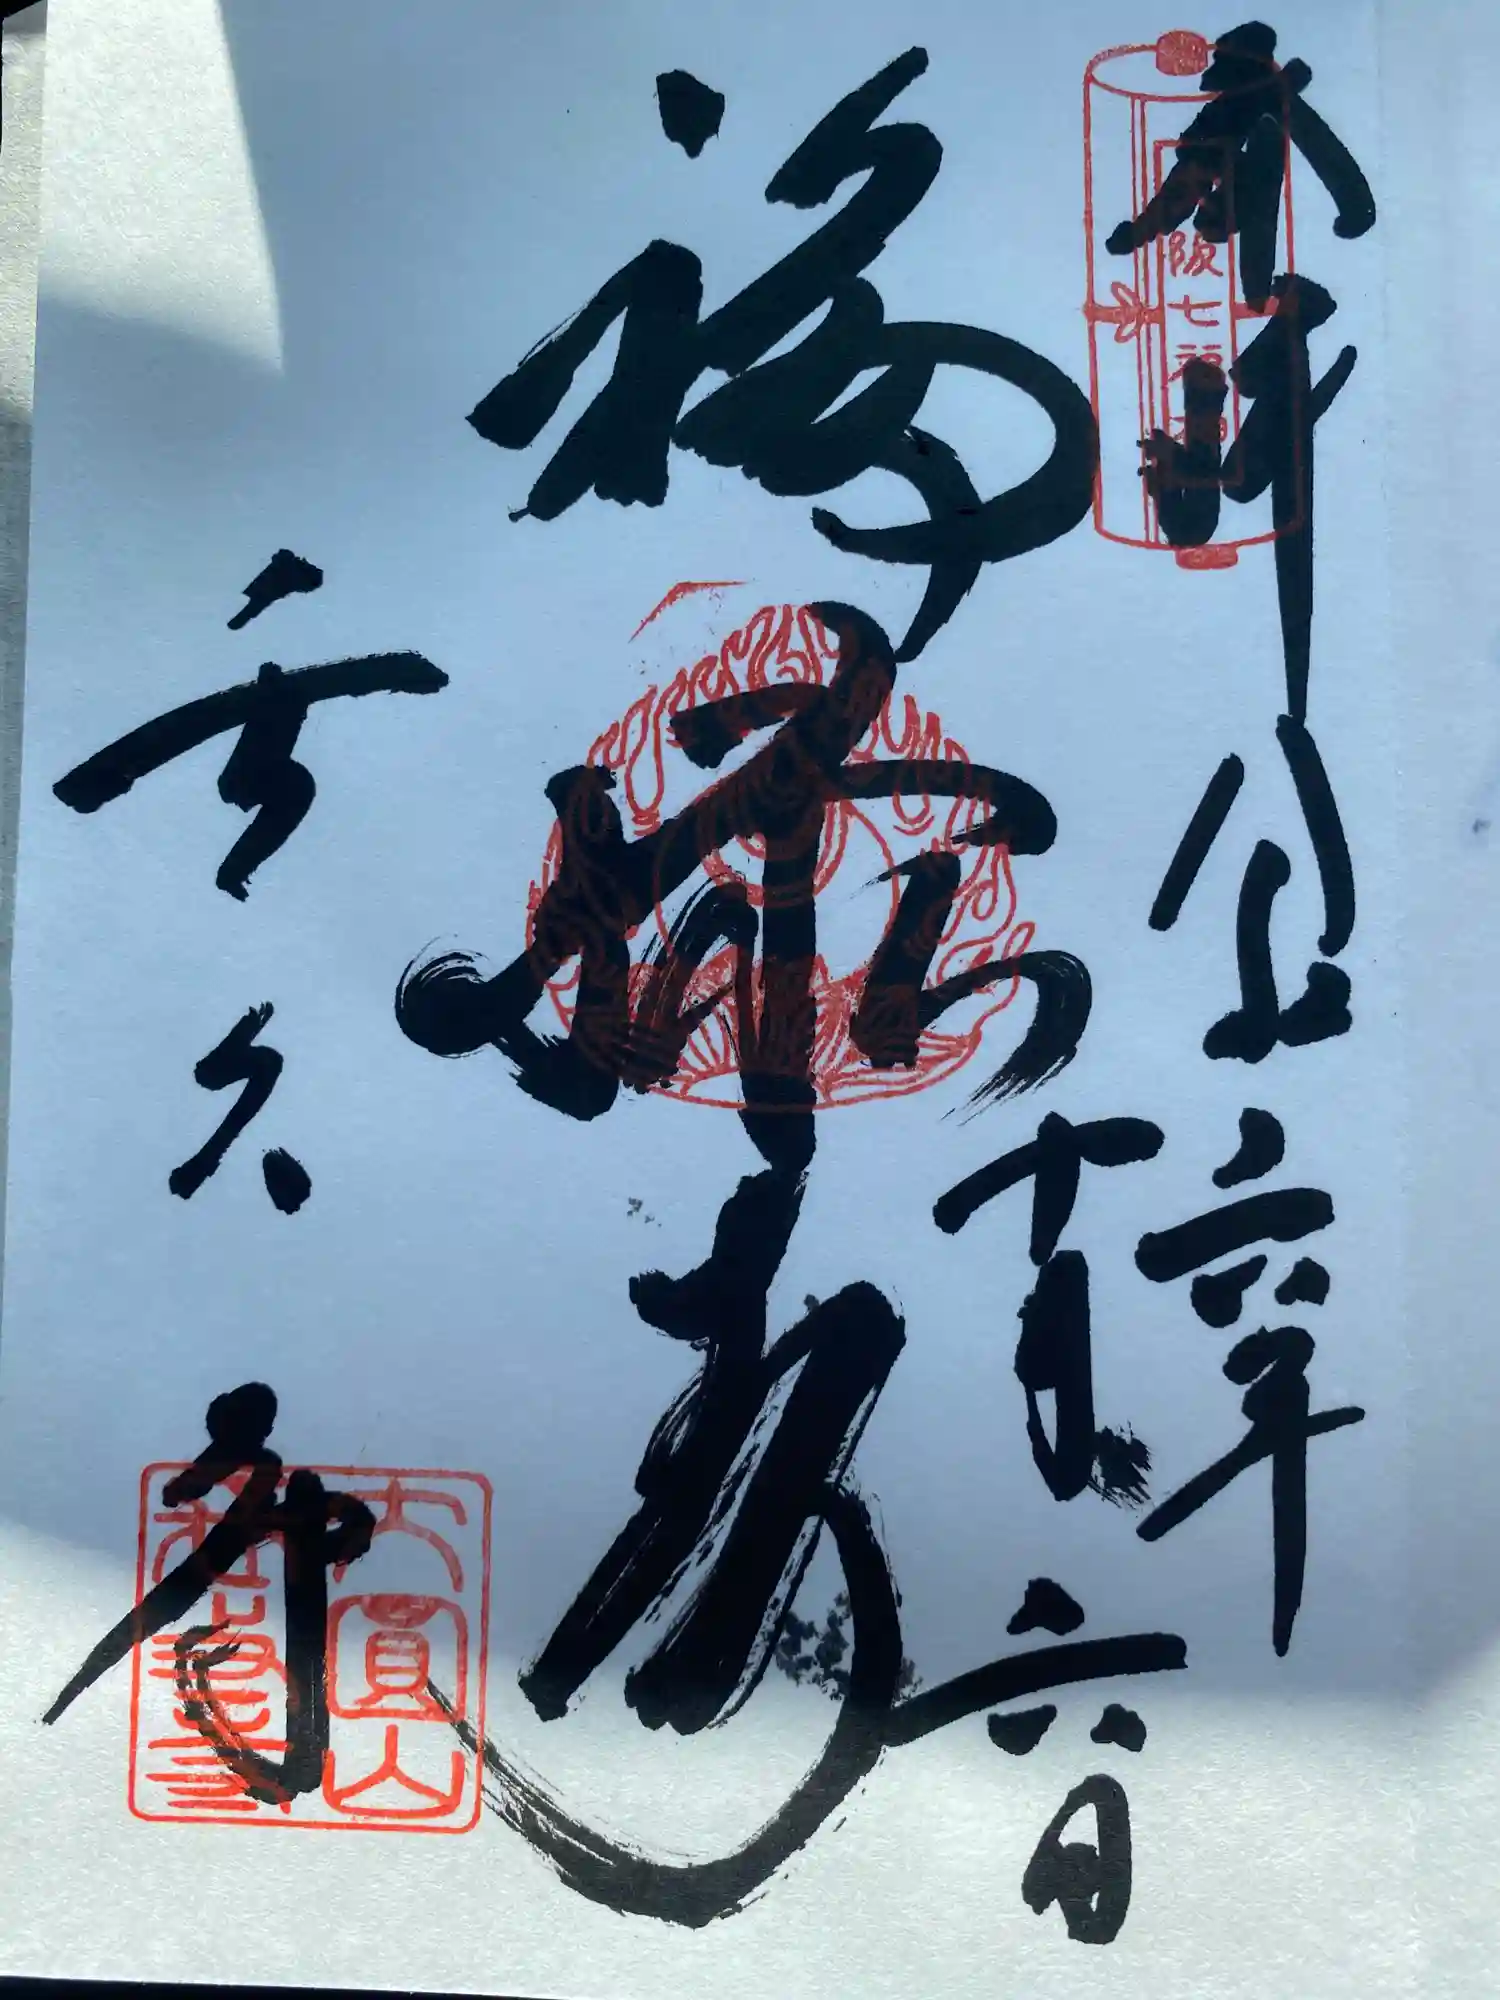 奉拝
大阪七福神
令和六年
十月六日
福禄寿
長久寺
大圓山